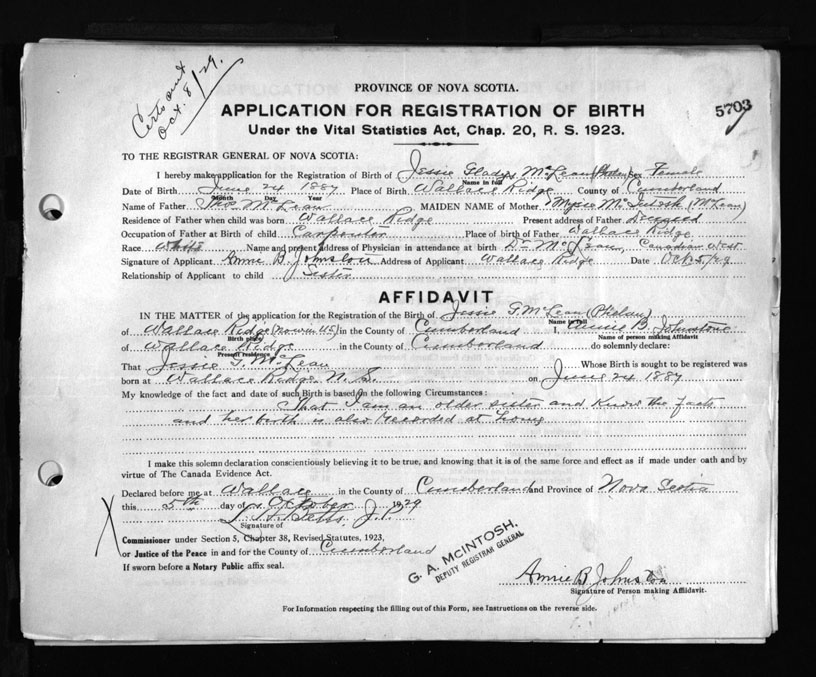 Certs sent
Oct. 8/29.
PROVINCE OF NOVA SCOTIA.
5703
APPLICATION FOR REGISTRATION OF BIRTH
Under the Vital Statistics Act, Chap. 20, R. S. 1923.
TO THE REGISTRAR GENERAL OF NOVA SCOTIA:
I hereby make application for the Registration of Birth of Jessie Gladys McLean (Phelan) Sex Female
Name in full
Date of Birth June 24 1887 Place of Birth Wallace Ridge County of Cumberland
Month Day Year
Name of Father McLean MAIDEN NAME of Mother McIntosh (McLean)
Residence of Father when child was born Wallace Ridge Present address of Father Deceased
Occupation of Father at Birth of child Carpenter Place of birth of Father Wallace Ridge
Race White Name and present address of Physician in attendance at birth Dr. Canadian West
Signature of Applicant Annie B. Johnston Address of Applicant Wallace Ridge Date Oct. 5/29
Relationship of Applicant to child Sister
AFFIDAVIT
IN THE MATTER of the application for the Registration of Birth of Jessie G. McLean (Phelan)
Name in full
of Wallace Ridge (now in U.S.) in the County of Cumberland I, Annie B. Johnstone
Birth place Name of person making Affidavit
of Wallace Ridge in the County of Cumberland do solemnly declare:
Present residence
That Jessie G. McLean Whose Birth is sought to be registered was
born at Wallace Ridge N. S. on June 24 1887
My knowledge of the fact and date of such Birth is based in the following Circumstances:
That I am an older sister and know the facts
and her birth is also recorded at home
I make this solemn declaration conscientiously believing it to be true, and knowing that it is of the same force and effect as if made under oath and by
virtue of The Canada Evidence Act.
Declared before me at Wallace in the County of Cumberland and Province of Nova Scotia
this 5th day of October 1929
Betts J.P.
Signature of
X
Commissioner under Section 5, Chapter 38, Revised Statutes, 1923,
or Justice of the Peace in and for the County of Cumberland
If sworn before a Notary Public affix seal.
G. A. MCINTOSH,
DEPUTY REGISTRAR GENERAL
Annie B Johnston
Signature of Person making Affidavit.
For Information respecting the filling out of this Form, see Instructions on the reverse side.